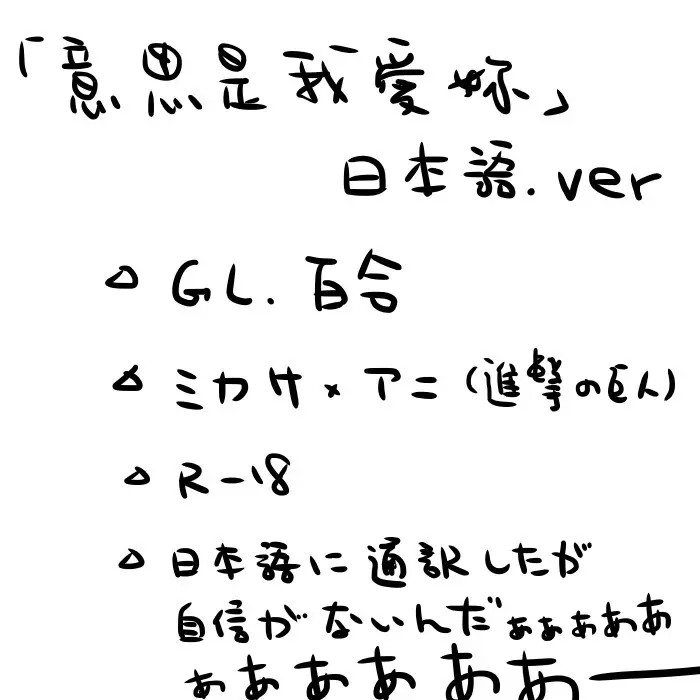 「意思是我愛妳」
日本語.ver
△ GL.百合
△ ミカサ×アニ(進撃の巨人)
△ R-18
△ 日本語に通訳したが
自信がないんだぁぁぁああ
ぁああああああ――